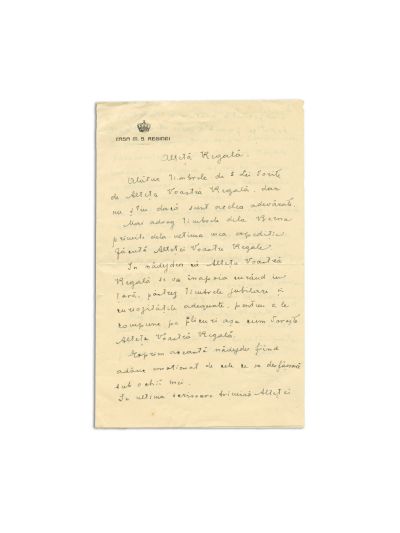 CASA M. S. REGINEI
Alteță Regală.
Alătur timbrele de 5 Lei dorite
de Alteța Voastră Regală, dar
nu știu dacă sunt acelea adevărate.
Mai adaog timbrele dela Berna
primite dela ultima mea expediție
făcută Alteței Voastre Regale.
In nădejdea că Alteța Voastră
Regală se va înapoia curând in
țară, păstrez timbrele jubiliare și
curiozitățile adequate, pentru a le
compune pe plicuri așa cum dorește
Alteța Voastră Regală.
Exprim această nădejde fiind
adânc emoționat de cele ce se desfășoară
sub ochii mei.
In ultima scrisoare trimisă Alteței